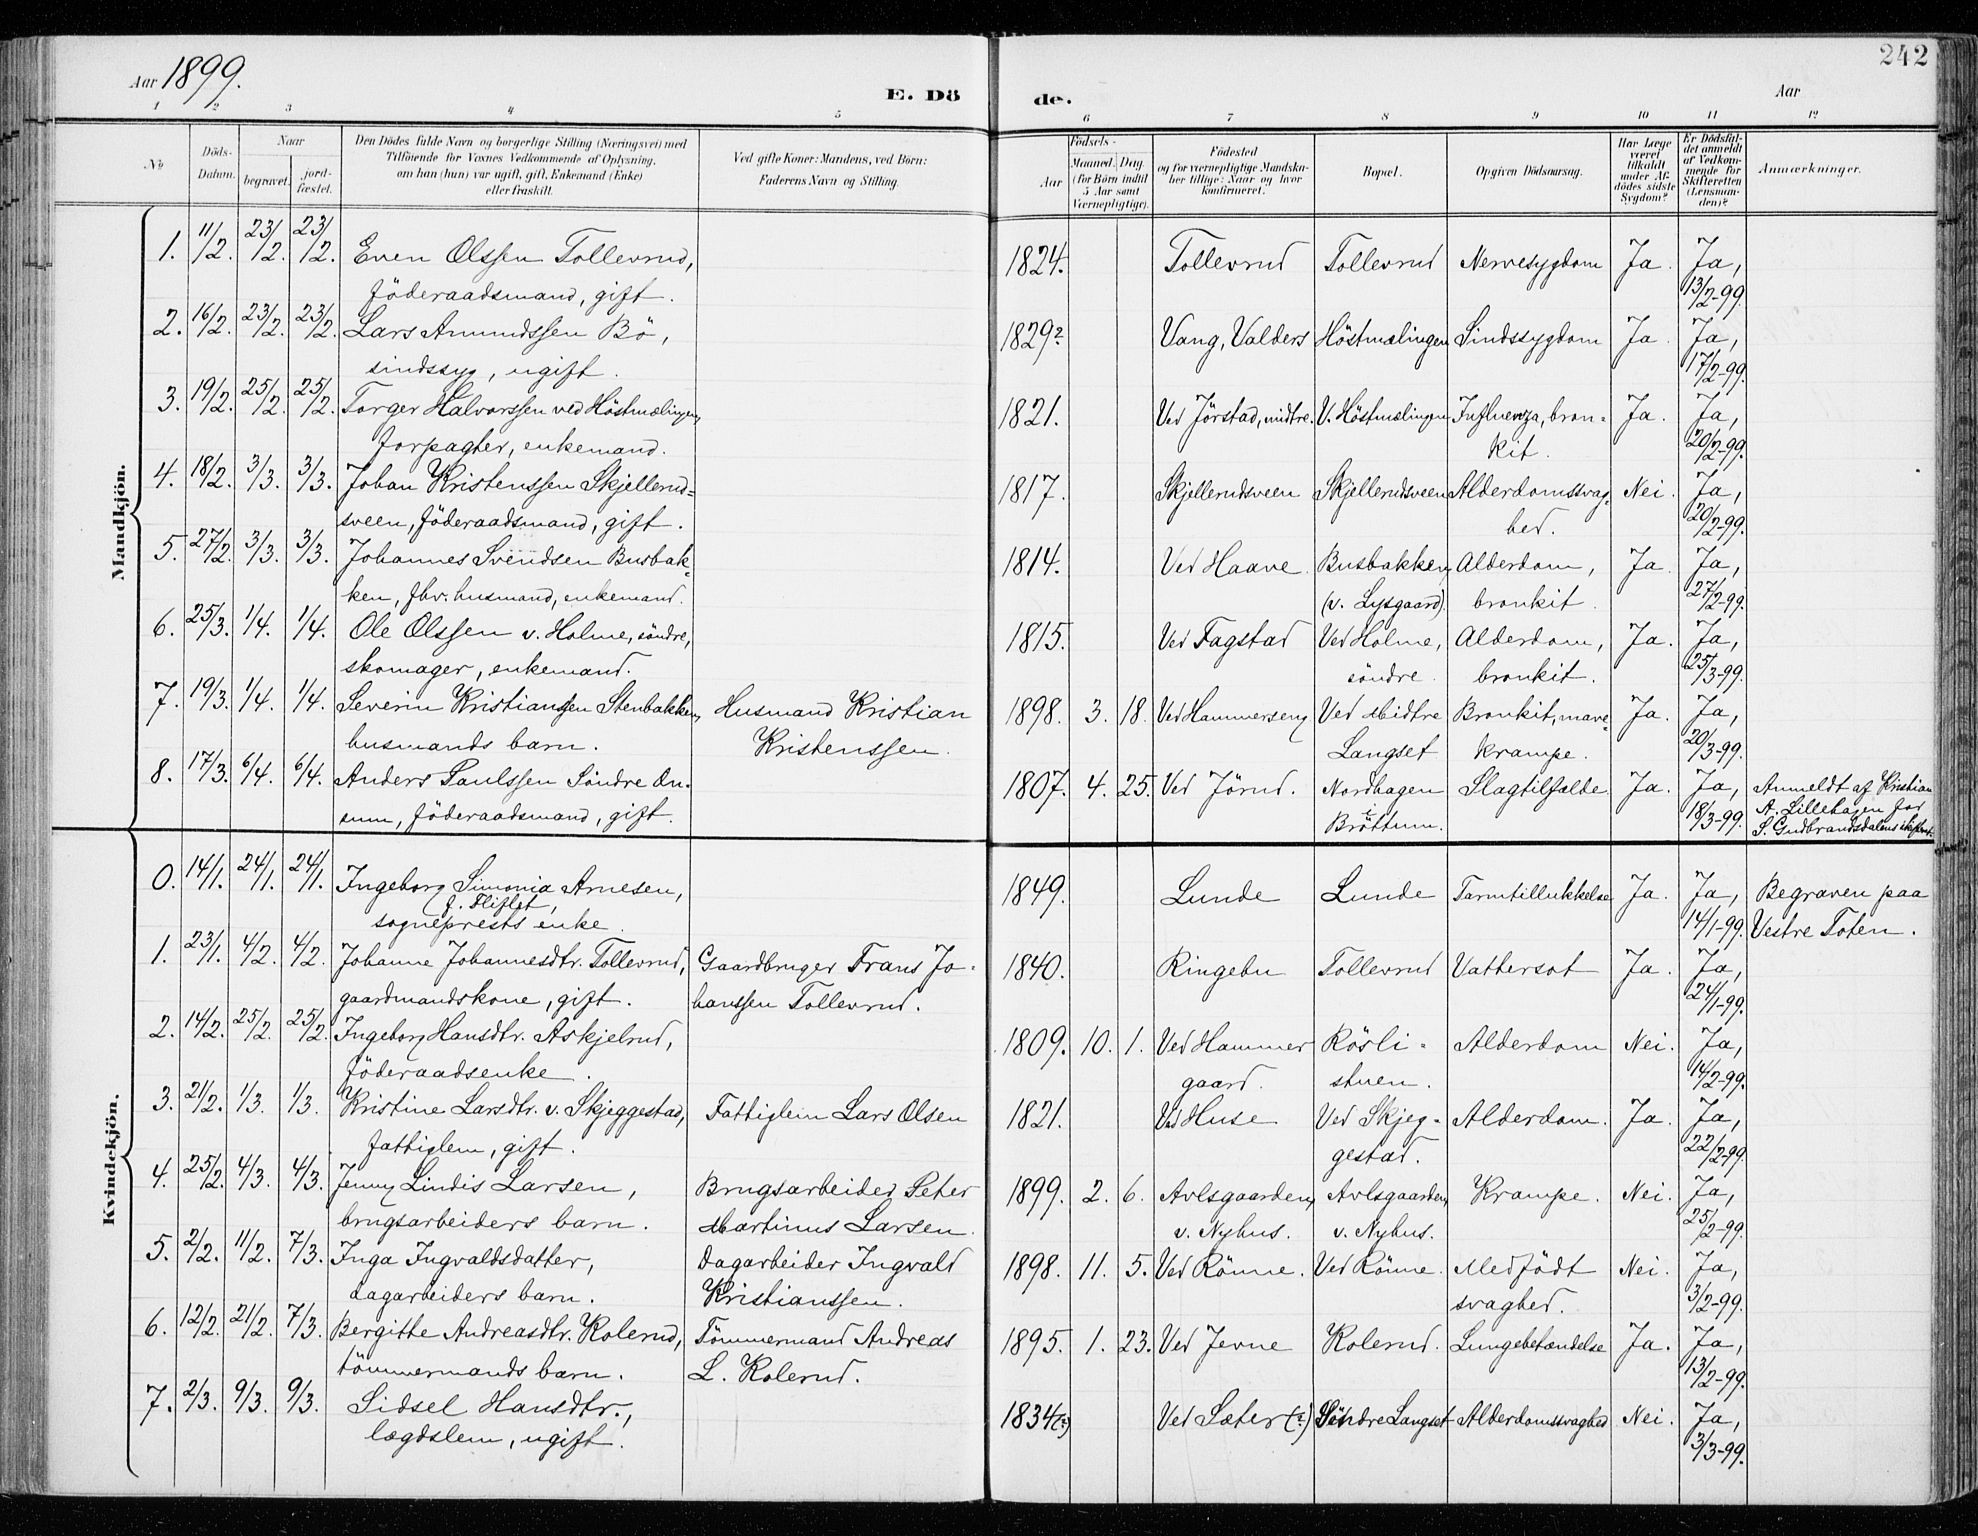 242
Aar 1899.
E. Dö
de.
Aar
1 2 3 4 5 6 7 8 9 10 11 12
No
Döds-
Datum.
Naar
begravet.
jord-
fæstet.
Den Dödes fulde Navn og borgerlige Stilling (Næringsvei) med
Tilföiende for Voxnes Vedkommende af Oplysning,
om han (hun) var ugift, gift, Enkemand (Enke)
eller fraskilt.
Ved gifte Koner: Mandens, ved Börn:
Faderens Navn og Stilling.
Födsels-
Aar
Maaned. Dag.
(for Börn indtil
5 Aar samt
Værnepligtige).
Födested
og for værnepligtige Mandska-
ber tillige: Naar og hvor
konfirmeret.
Bopæl.
Opgiven Dödsaarsag.
Har Læge
været
tilkaldt
under Af-
dödes sidste
Sygdom?
Er Dödsfal-
det anmeldt
af Vedkom-
mende for
Skifteretten
(Lensman-
den)?
Anmærkninger.
Mandkjön.
1. 11/2. 23/2. 23/2. Even Olssen Tollevrud, 1824. Tollevrud Tollevrud Nervesygdom Ja. Ja,
föderaadsmand, gift. 13/2-99.
2. 16/2. 23/2. 23/2. Lars Amundssen Bö, 1829? Vang, Valders Höstmælingen Sindssygdom Ja. Ja,
sindssyg, ugift. 17/2-99.
3. 19/2. 25/2. 25/2. Torger Halvorssen ved Höstmælingen, 1821. Ved Jörstad, midtre. V. Höstmælingen Influenza, bron- Ja. Ja,
forpagter, enkemand. kit. 20/2-99.
4. 18/2. 3/3. 3/3. Johan Kristenssen Skjellerud- 1817. Skjellerudsveen Skjellerudsveen Alderdomssvag- Nei. Ja,
sveen, föderaadsmand, gift. hed. 20/2-99.
5. 27/2. 3/3. 3/3. Johannes Svendsen Busbak- 1814. Ved Haave. Busbakken, Alderdom, Ja. Ja,
ken, fhv. husmand, enkemand. (v. Lysgaard). bronkit. 27/2-99.
6. 25/3. 1/4. 1/4. Ole Olssen v. Holme, söndre, 1815. Ved Fagstad Ved Holme, Alderdom, Ja. Ja,
skomager, enkemand. söndre. bronkit. 25/3-99.
7. 19/3. 1/4. 1/4. Severin Kristianssen Stenbakken, Husmand Kristian 1898. 3. 18. Ved Hammerseng Ved Midtre Bronkit, mave- Ja. Ja,
husmands barn. Kristenssen. Langset krampe. 20/3-99.
8. 17/3. 6/4. 6/4. Anders Paulssen Söndre On- 1807. 4. 25. Ved Jörud. Nordhagen Slagtilfælde. Ja. Ja, Anmeldt af Kristian
sum, föderaadsmand, gift. i Bröttum. 18/3-99. A. Lillehagen for
S. Gudbrandsdalens skifteret.
Kvindekjön.
0. 14/1. 24/1. 24/1. Ingeborg Simonia Arnesen, 1849. Lunde Lunde Tarmtillukkelse Ja. Ja, Begraven paa
f. Fliflet,
sogneprests enke. 14/1-99. Vestre Toten.
1. 23/1. 4/2. 4/2. Johanne Johannesdtr. Tollevrud, Gaardbruger Frans Jo- 1840. Ringebu Tollevrud Vattersot Ja. Ja,
gaardmandskone, gift. hanssen Tollevrud. 24/1-99.
2. 14/2. 25/2. 25/2. Ingeborg Hansdtr. Askjelrud, 1809. 10. 1. Ved Hammer Rösli- Alderdom Nei. Ja,
föderaadsenke. gaard. stuen. 14/2-99.
3. 21/2. 1/3. 1/3. Kristine Larsdtr. v. Skjeggestad, Fattiglem Lars Olsen 1821. Ved Huse Ved Skjeg- Alderdom. Ja. Ja,
fattiglem, gift. gestad. 22/2-99.
4. 25/2. 4/3. 4/3. Jenny Lindis Larsen, Brugsarbeider Peter 1899. 2. 6. Avlsgaarden, Avlsgaarden, Krampe. Nei. Ja,
brugsarbeiders barn. Martinus Larsen. v. Nyhus. v. Nyhus. 25/2-99.
5. 2/2. 11/2. 7/3. Inga Ingvaldsdatter, Dagarbeider Ingvald 1898. 11. 5. Ved Rönne. Ved Rönne. Medfödt Nei. Ja,
dagarbeiders barn. Kristianssen. svaghed. 3/2-99.
6. 12/2. 21/2. 7/3. Bergitte Andreasdtr. Kolerud, Tömmermand Andreas 1895. 1. 23. Ved Jevne Kolerud. Lungebetændelse Ja. Ja,
tömmermands barn. L. Kolerud. 13/2-99.
7. 2/3. 9/3. 9/3. Sidsel Hansdtr., 1834(?) Ved Sæter (?) Söndre Langset Alderdomssvaghed Nei. Ja,
lægdslem, ugift. 3/3-99.